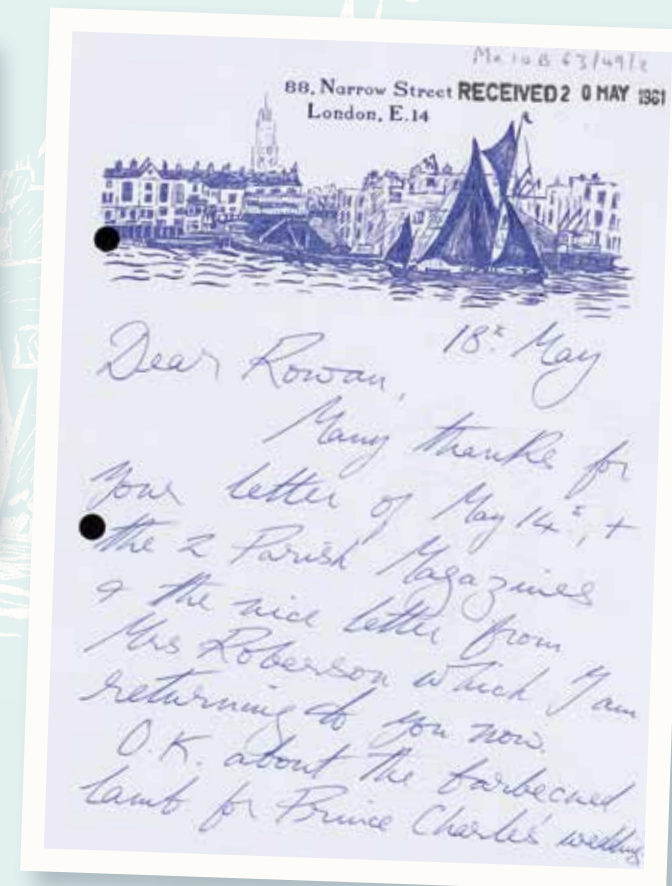 88, Narrow Street RECEIVED 2 0 MAY 1981
London, E.14
18th May
Dear Rowan,
Many thanks for
your letter of May 14th, +
the 2 Parish Magazines
& the nice letter from
Mrs Roberson which I am
returning to you now.
O.K. about the barbecued
lamb for Prince Charles' wedding